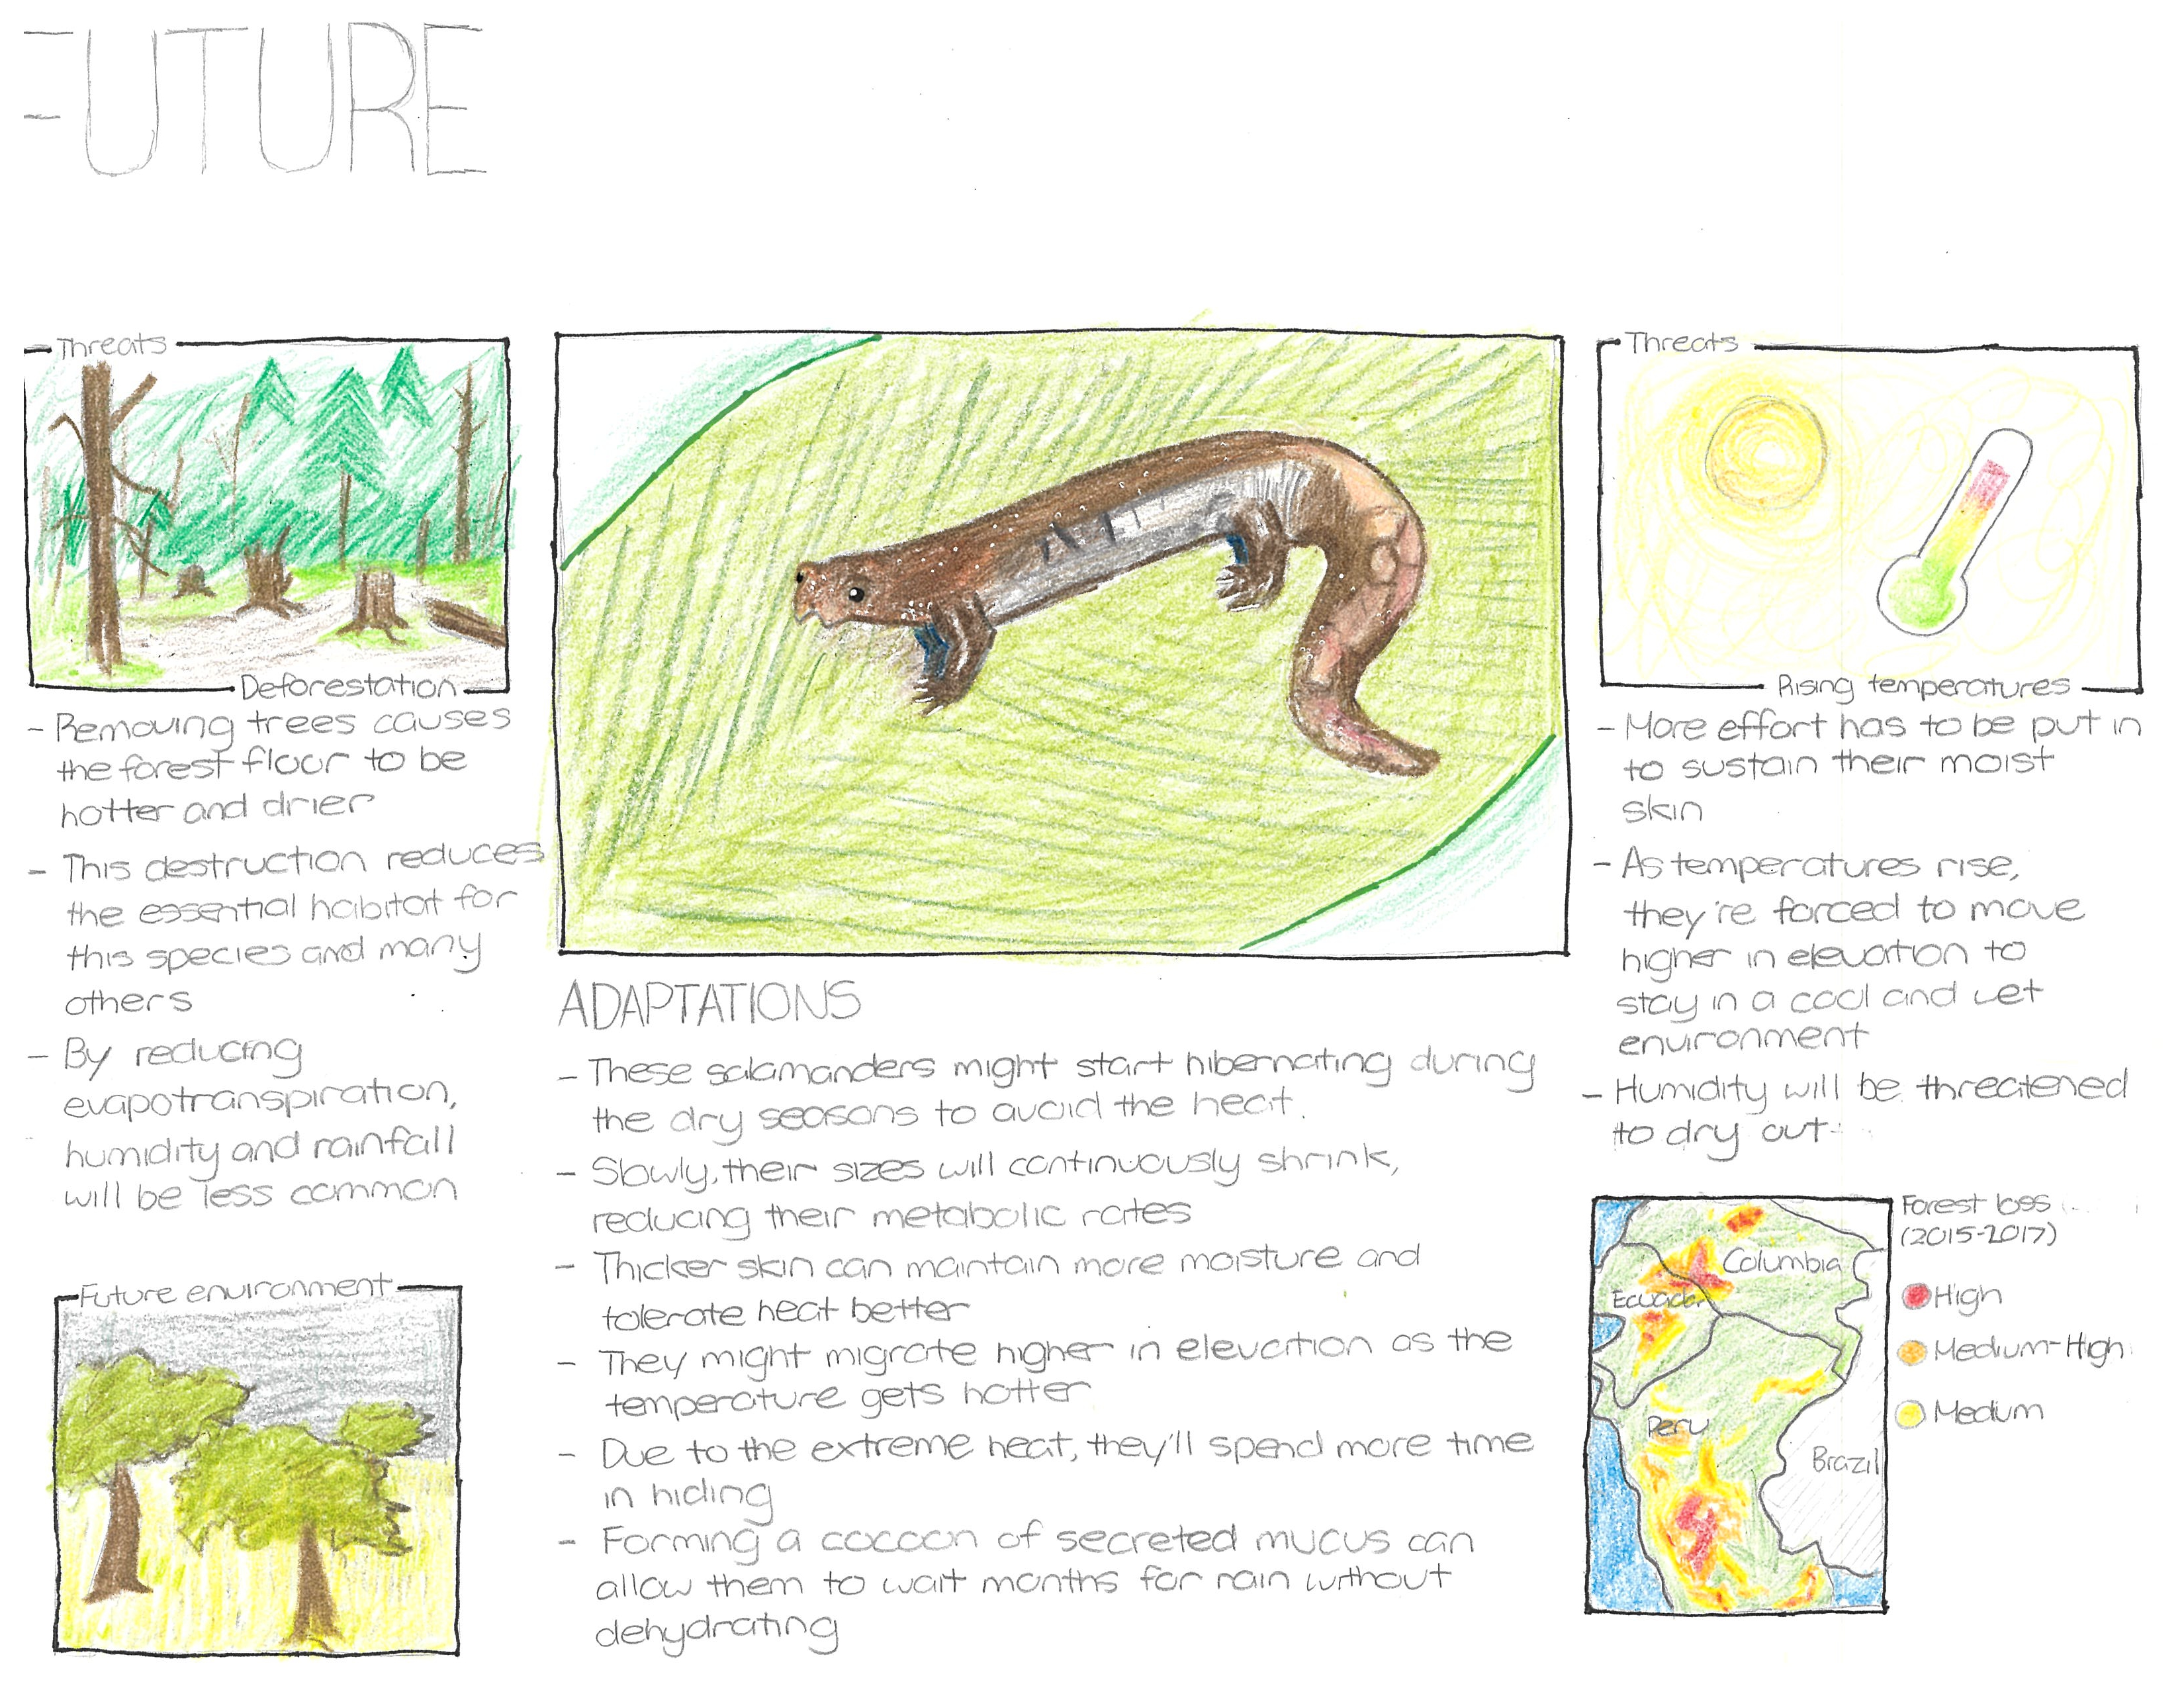 FUTURE
Threats
Deforestation
- Removing trees causes
the forest floor to be
hotter and drier
- This destruction reduces
the essential habitat for
this species and many
others
- By reducing
evapotranspiration,
humidity and rainfall
will be less common
Future environment
ADAPTATIONS
- These salamanders might start hibernating during
the dry seasons to avoid the heat.
- Slowly, their sizes will continuously shrink,
reducing their metabolic rates
- Thicker skin can maintain more moisture and
tolerate heat better
- They might migrate higher in elevation as the
temperature gets hotter
- Due to the extreme heat, they'll spend more time
in hiding
- Forming a cocoon of secreted mucus can
allow them to wait months for rain without
dehydrating
Threats
Rising temperatures
- More effort has to be put in
to sustain their moist
skin
- As temperatures rise,
they're forced to move
higher in elevation to
stay in a cool and wet
environment
- Humidity will be threatened
to dry out
Forest loss
(2015-2017)
High
Medium-High
Medium
Columbia
Ecuador
Peru
Brazil